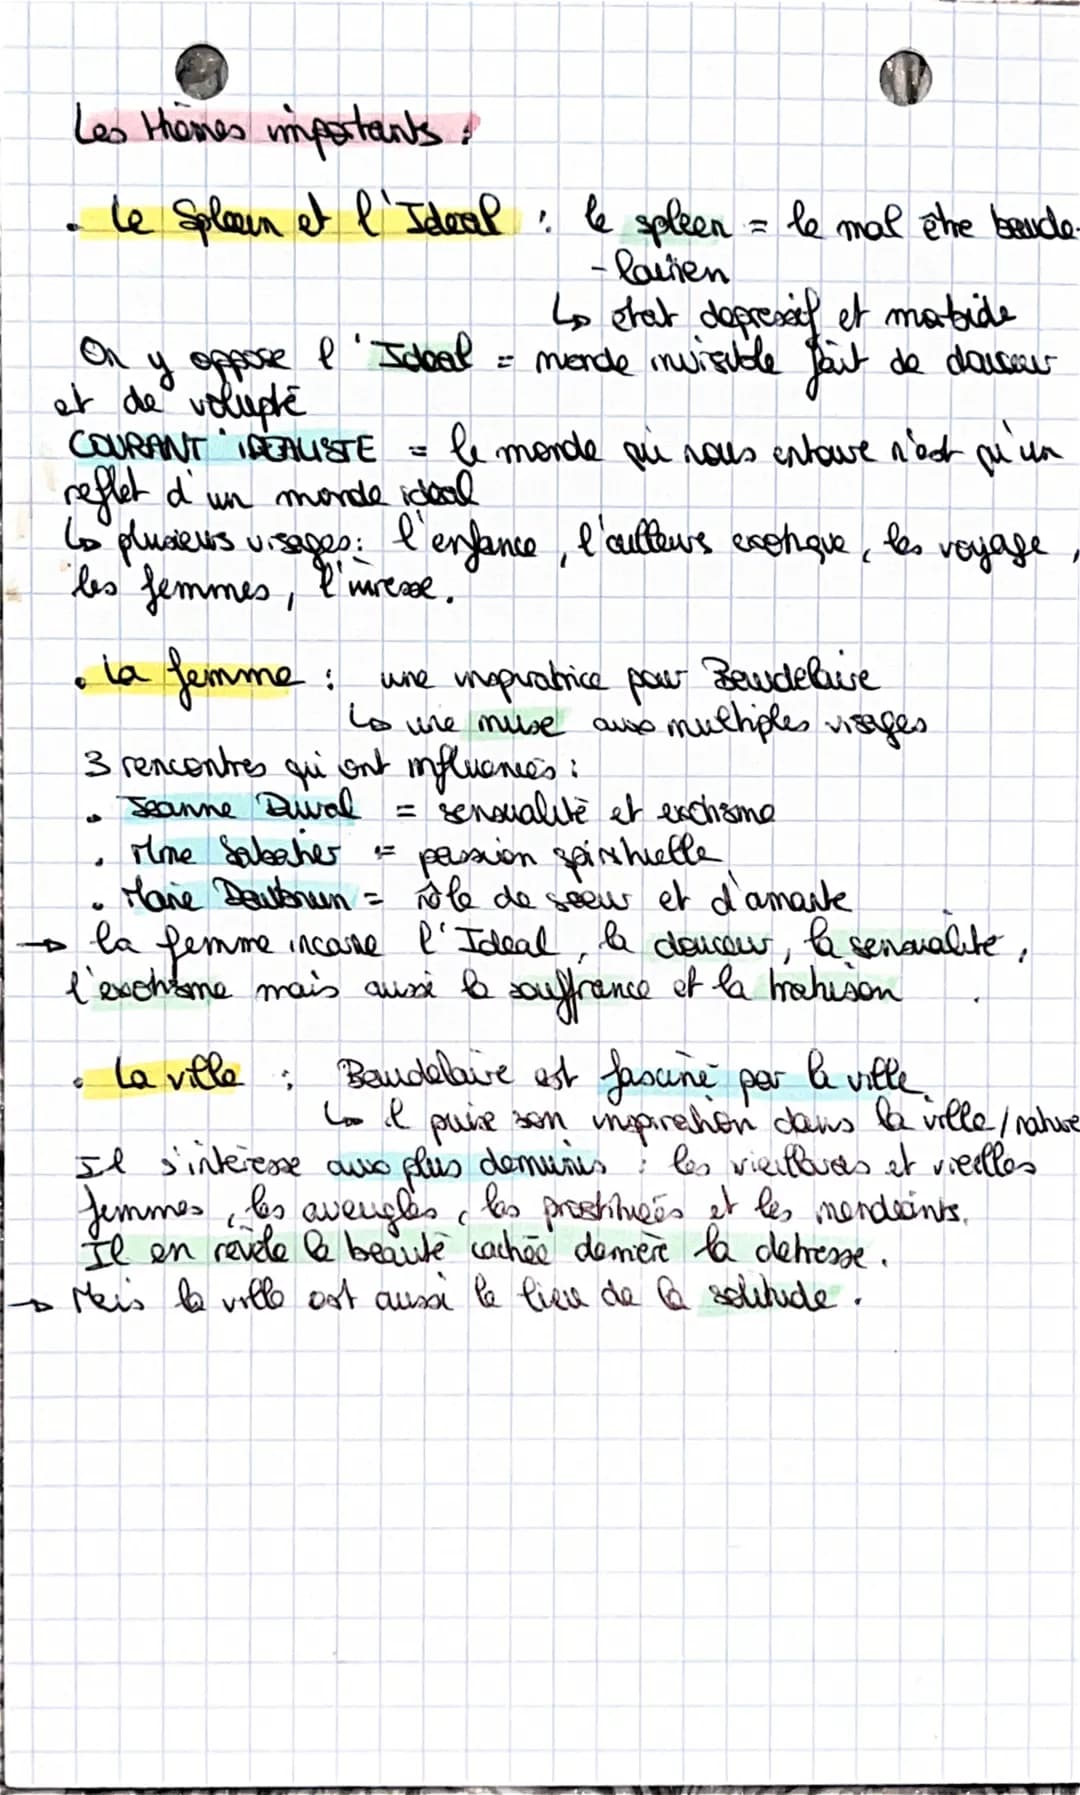 Les thèmes importants :
. Le Spleen et l'Ideal : le spleen = le mal être baude-
-lairien
↳ état depressif et morbide
On y oppose l'Ideal = monde invisible fait de douceur
et de volupté
COURANT IDEALISTE = le monde qui nous entoure n'est qu'un
reflet d'un monde ideal
↳ plusieurs visages : l'enfance, l'ailleurs exotique, les voyage,
les femmes, l'ivresse.
. La femme : une inspiratrice pour Baudelaire
↳ une muse aux multiples visages
3 rencontres qui ont influencés :
. Jeanne Duval = sensualité et exotisme
. Mme Sabatier = passion spirituelle
. Marie Daubrun = rôle de soeur et d'amante
→ la femme incarne l'Ideal, la douceur, la sensualité,
l'exotisme mais aussi la souffrance et la trahison
. La ville : Baudelaire est fasciné par la ville
↳ il puise son inspiration dans la ville/nature
Il s'intéresse aux plus demunis : les vieillards et vieilles
femmes, les aveugles, les prostituées et les mendiants.
Il en révèle la beauté cachée derrière la detresse.
→ Mais la ville est aussi le lieu de la solitude.